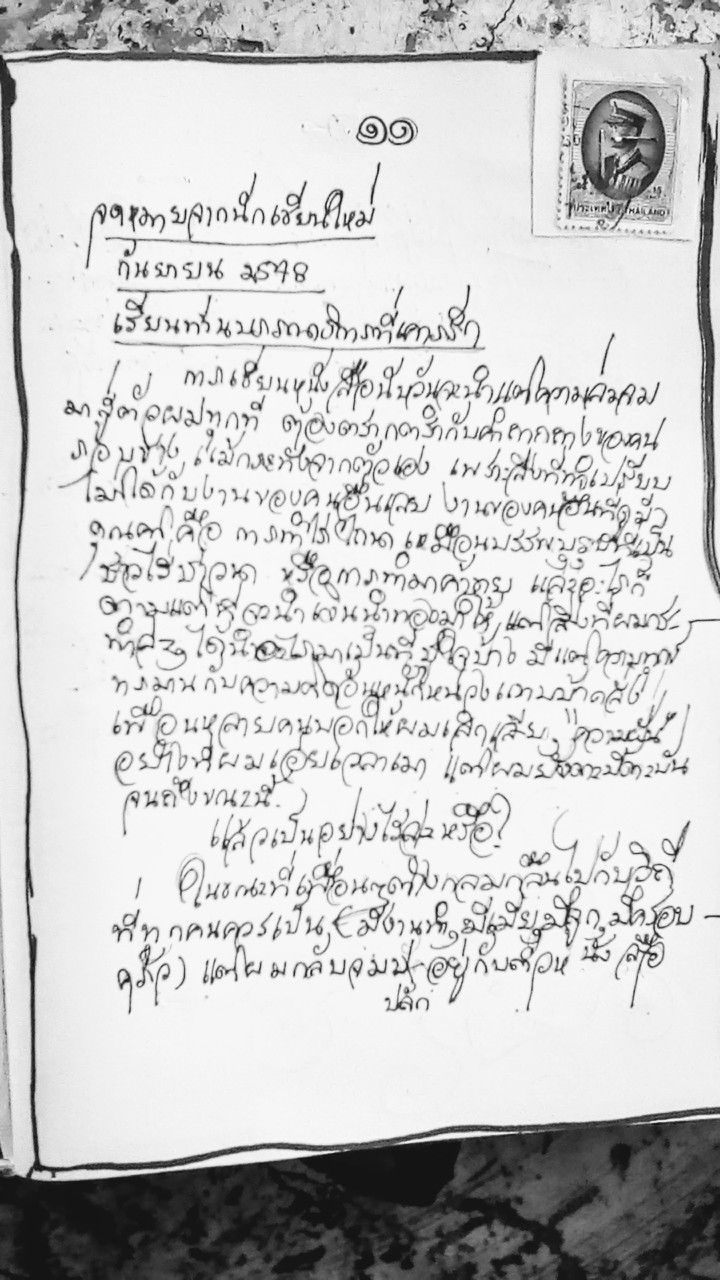 ๑๑
ประเทศไทย THAILAND
จดหมายจากนักเขียนใหม่
กันยายน ๒๕๔๘
เรียนท่านบรรณาธิการที่เคารพรัก
การเขียนหนังสือนับวันจะนำแต่ความล่มจม
มาสู่ตัวผมทุกที ต้องตรากตรำกับคำถากถางของคน
รอบข้าง แม้กระทั่งจากตัวเอง เพราะสิ่งที่ทำเปรียบ
ไม่ได้กับงานของคนอื่นเลย งานของคนอื่นที่ดูมี
คุณค่า คือ การทำไร่ไถนา เหมือนบรรพบุรุษที่เป็น
ชาวไร่ชาวนา หรือการทำมาค้าขาย และอะไรก็
ตามแต่ที่จะนำเงินนำทองมาให้ แต่สิ่งที่ผมกระ-
ทำ ได้นำอะไรมาเป็นที่ชูใจบ้าง มีแต่ความทุกข์
ทรมานกับความคิดอันหนักหน่วงแทบบ้าคลั่ง
เพื่อนหลายคนบอกให้ผมเลิกเสีย "ความฝัน"
อย่างที่ผมเอ่ยเวลาเมา แต่ผมยังดะบี้ดะบัน
จนถึงขณะนี้
แล้วเป็นอย่างไรล่ะหรือ?
ในขณะที่เพื่อนๆต่างกลมกลืนไปกับวิถี
ที่ทุกคนควรเป็น (มีงานทำ, มีเมีย, มีลูก, มีครอบ-
ครัว) แต่ผมกลับจมปลักอยู่กับตัวหนังสือ